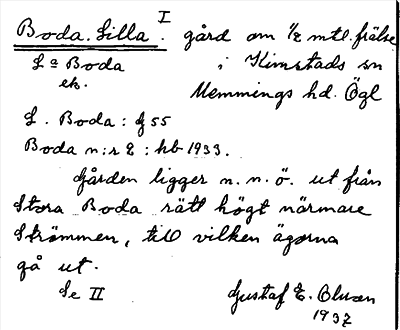 I
Boda. Lilla. gård om 1/2 mtl. frälse
L:a Boda i Kimstads sn
ek. Memmings hd. Ögl
L. Boda: G 55
Boda n:r 2: hb 1933.
Gården ligger n. n. ö. ut från
Stora Boda rätt högt närmare
Strömmen, till vilken ägorna
gå ut.
Se II Gustaf E. Olsson
1937